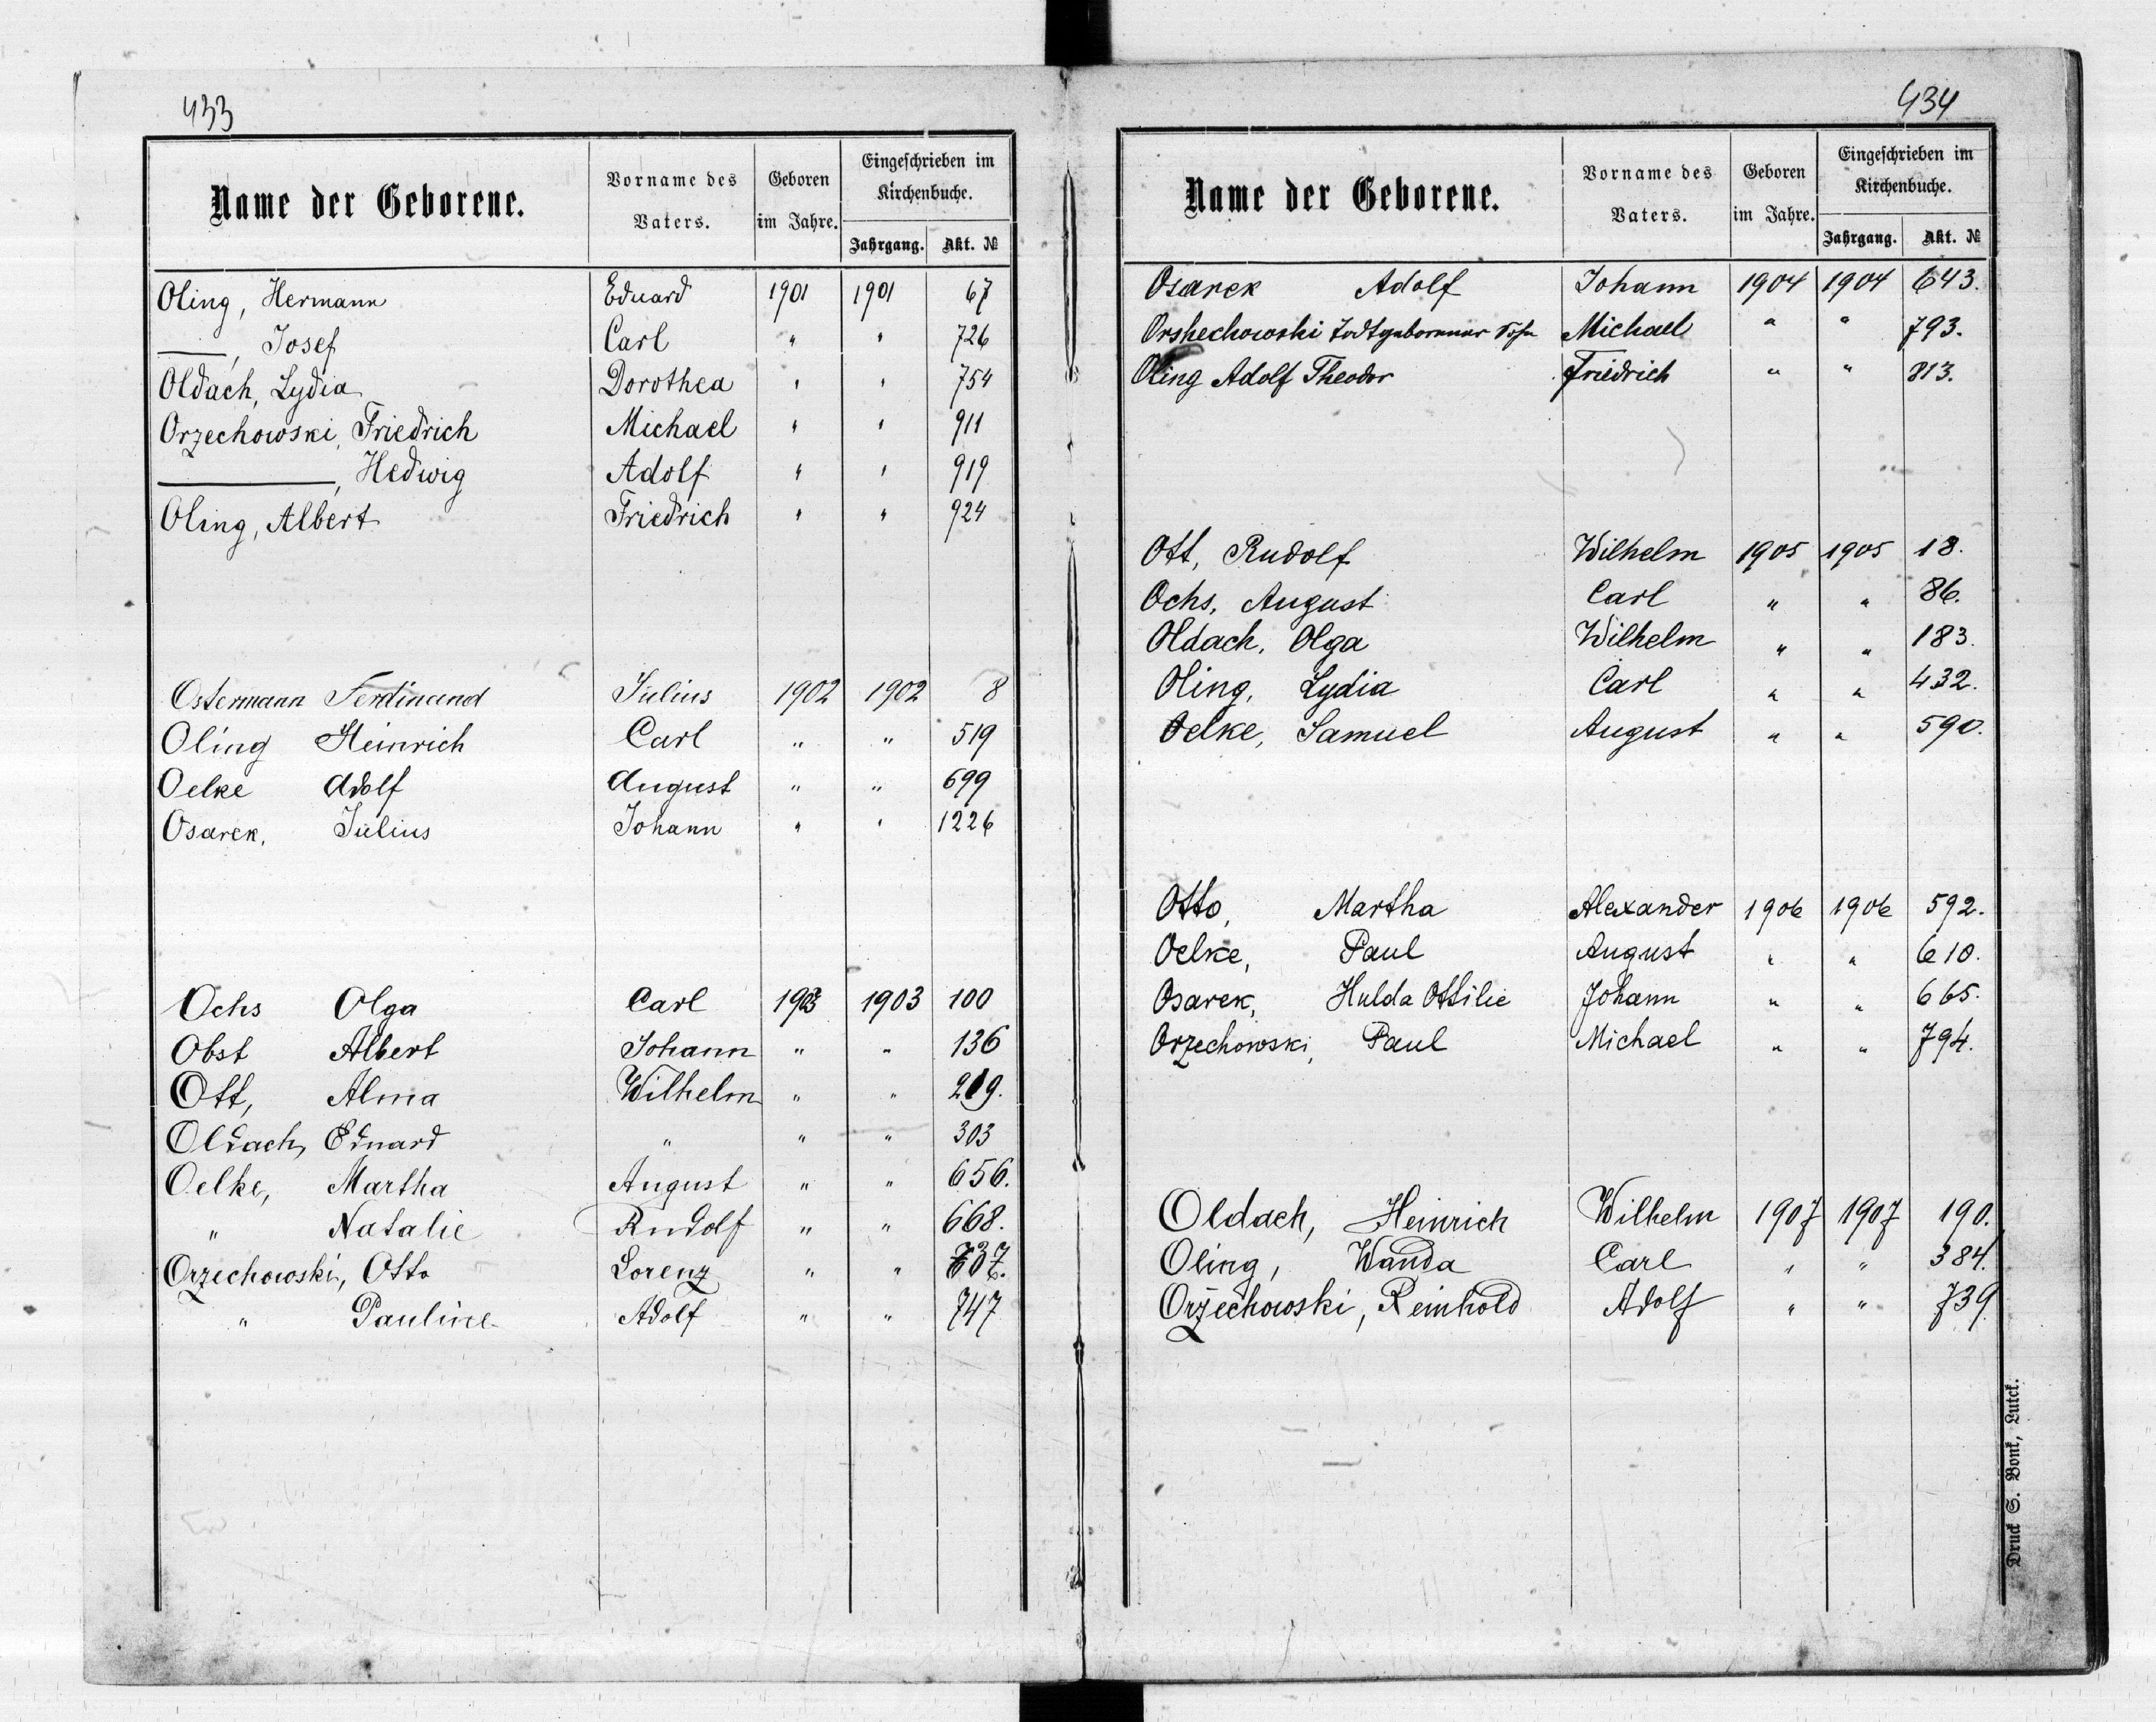 433
Name der Geborene. Vorname des Vaters. Geboren im Jahre. Eingeschrieben im Kirchenbuche. Jahrgang. Akt. №
Oling, Hermann Eduard 1901 1901 67
——, Josef Carl " " 726
Oldach, Lydia Dorothea " " 754
Orzechowski, Friedrich Michael " " 911
——, Hedwig Adolf " " 919
Oling, Albert Friedrich " " 924
Ostermann Ferdinand Julius 1902 1902 8
Oling Heinrich Carl " " 519
Oelke Adolf August " " 699
Osarek, Julius Johann " " 1226
Ochs Olga Carl 1903 1903 100
Obst Albert Johann " " 136
Ott, Alma Wilhelm " " 219.
Oldach, Eduard " " " 303
Oelke, Martha August " " 656.
" Natalie Rudolf " " 668.
Orzechowski, Otto Lorenz " "
" Pauline Adolf " " 747
434
Name der Geborene. Vorname des Vaters. Geboren im Jahre. Eingeschrieben im Kirchenbuche. Jahrgang. Akt. №
Osarek Adolf Johann 1904 1904 643.
Orshechowski Todtgeborener Sohn Michael " " 793.
Oling Adolf Theodor Friedrich " " 813.
Ott, Rudolf Wilhelm 1905 1905 18.
Ochs, August Carl " " 86.
Oldach, Olga Wilhelm " " 183.
Oling, Lydia Carl " " 432.
Oelke, Samuel August " " 590.
Otto, Martha Alexander 1906 1906 592.
Oelke, Paul August " " 610.
Osarek, Hulda Ottilie Johann " " 665.
Orzechowski, Paul Michael " " 794.
Oldach, Heinrich Wilhelm 1907 1907 190.
Oling, Wanda Carl " " 384.
Orzechowski, Reinhold Adolf " " 739
Druck S. Bonk, Lutck.